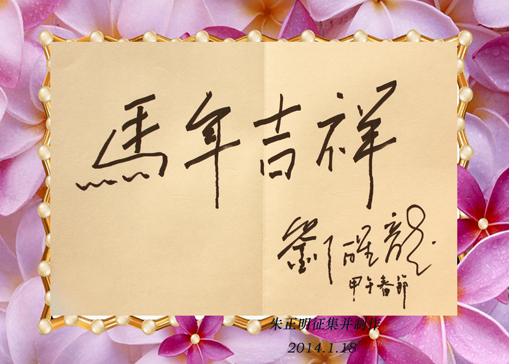 馬年吉祥
劉耀龍
甲午春節
朱正明征集并制作
2014.1.18